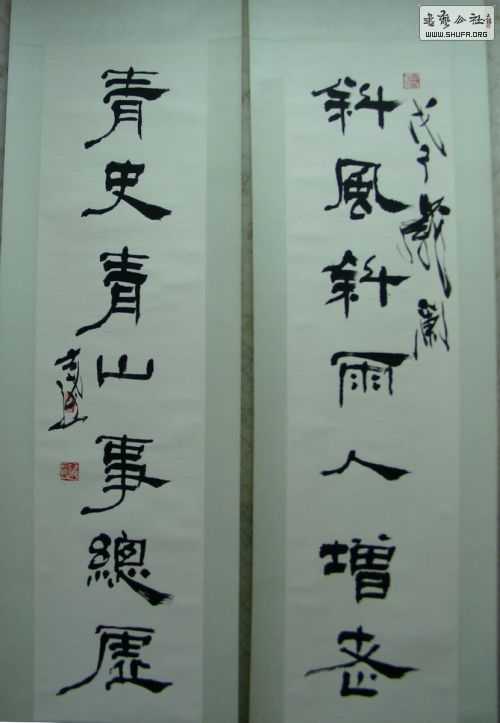 斜風斜雨人增老
戊子歲闌
青史青山事總虛
書藝公社
WWW.SHUFA.ORG